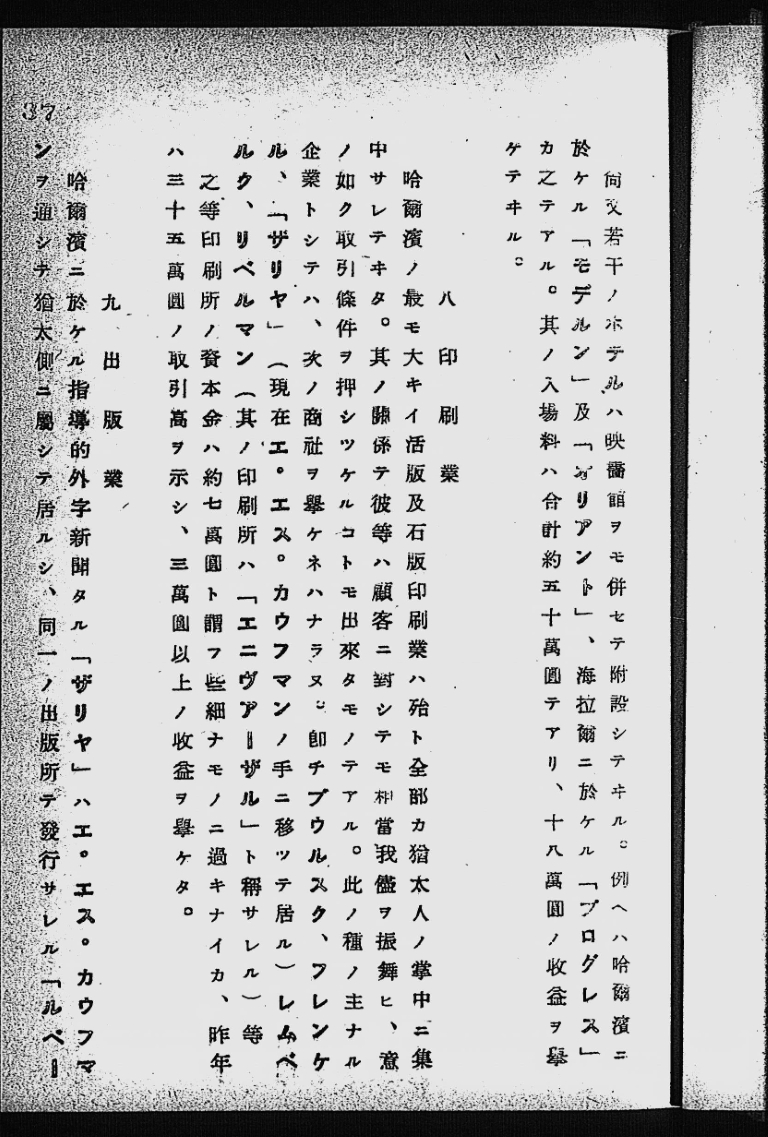 尚又若干ノホテルハ映畵館ヲモ併セテ附設シテヰル。例ヘハ哈爾濱ニ
於ケル「モデルン」及「オリアント」、海拉爾ニ於ケル「プログレス」
カ之テアル。其ノ入場料ハ合計約五十萬圓テアリ、十八萬圓ノ收益ヲ擧
ケテヰル。
八 印刷業
哈爾濱ノ最モ大キイ活版及石版印刷業ハ殆ト全部カ猶太人ノ掌中ニ集
中サレテヰタ。其ノ關係テ彼等ハ顧客ニ對シテモ相當我儘ヲ振舞ヒ、意
ノ如ク取引條件ヲ押シツケルコトモ出來タモノテアル。此ノ種ノ主ナル
企業トシテハ、次ノ商社ヲ擧ケネハナラヌ。卽チブウルスク、フレンケ
ル、「ザリヤ」（現在エ。エス。カウフマンノ手ニ移ツテ居ル）レムベ
ルク、リベルマン（其ノ印刷所ハ「エニヴアーザル」ト稱サレル）等
之等印刷所ノ資本金ハ約七萬圓ト謂フ些細ナモノニ過キナイカ、昨年
ハ三十五萬圓ノ取引高ヲ示シ、三萬圓以上ノ收益ヲ擧ケタ。
九 出版業
哈爾濱ニ於ケル指導的外字新聞タル「ザリヤ」ハエ。エス。カウフマ
ンヲ通シテ猶太側ニ屬シテ居ルシ、同一ノ出版所テ發行サレル「ルベー
37